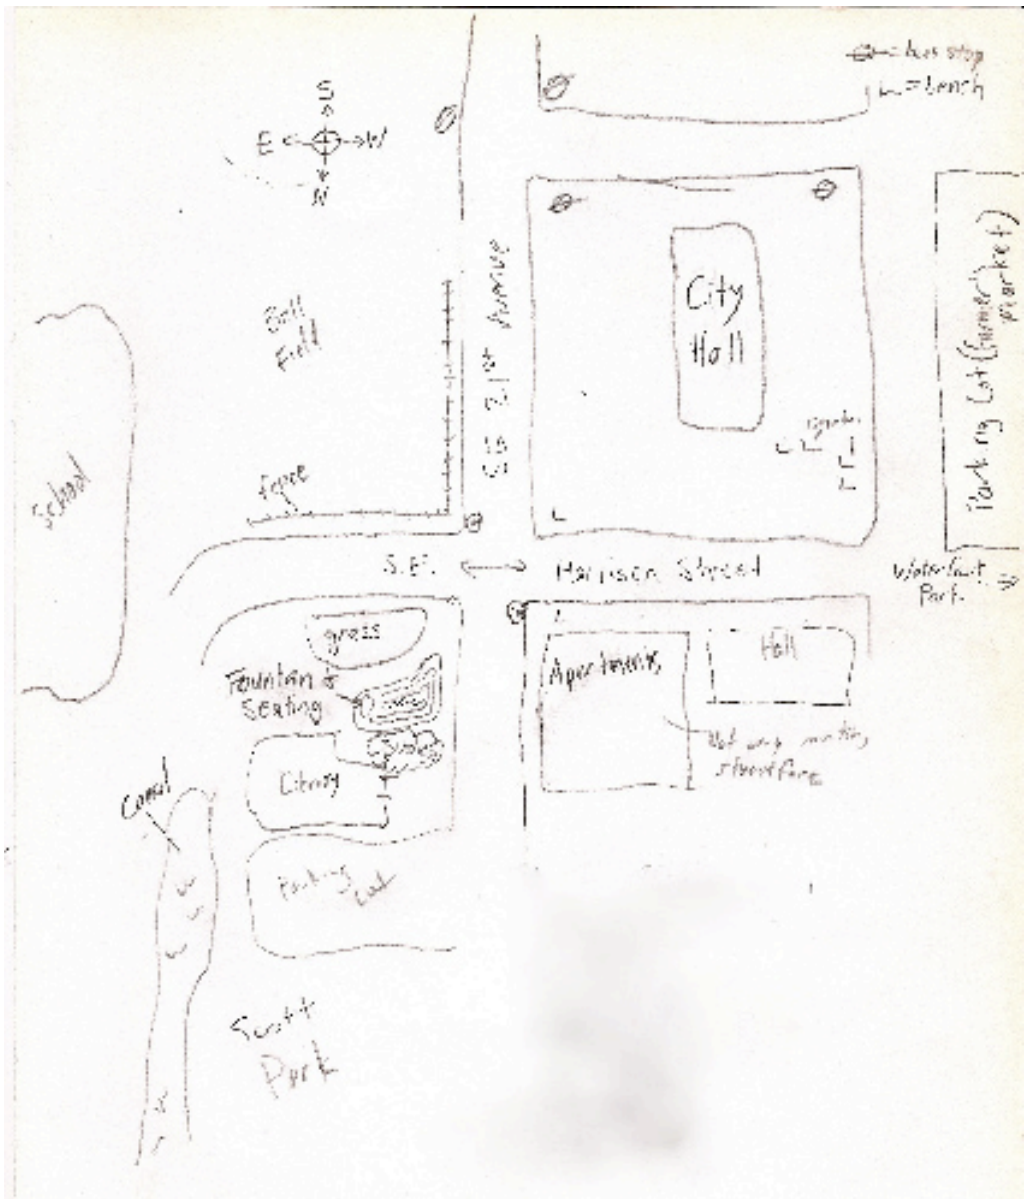 = bus stop
= bench
S
E
W
N
City
Hall
Ball
Field
SE 21st Avenue
Parking Lot (Farmer's
Market)
School
fence
S.E.
Harrison Street
Waterfront
Park
grass
Fountain &
Seating
Apartments
Hall
Library
Canal
Parking
Lot
Scott
Park